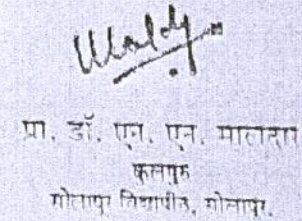 प्रा. डॉ. एन. एन. मालदार
कुलगुरु
सोलापूर विद्यापीठ, सोलापूर.